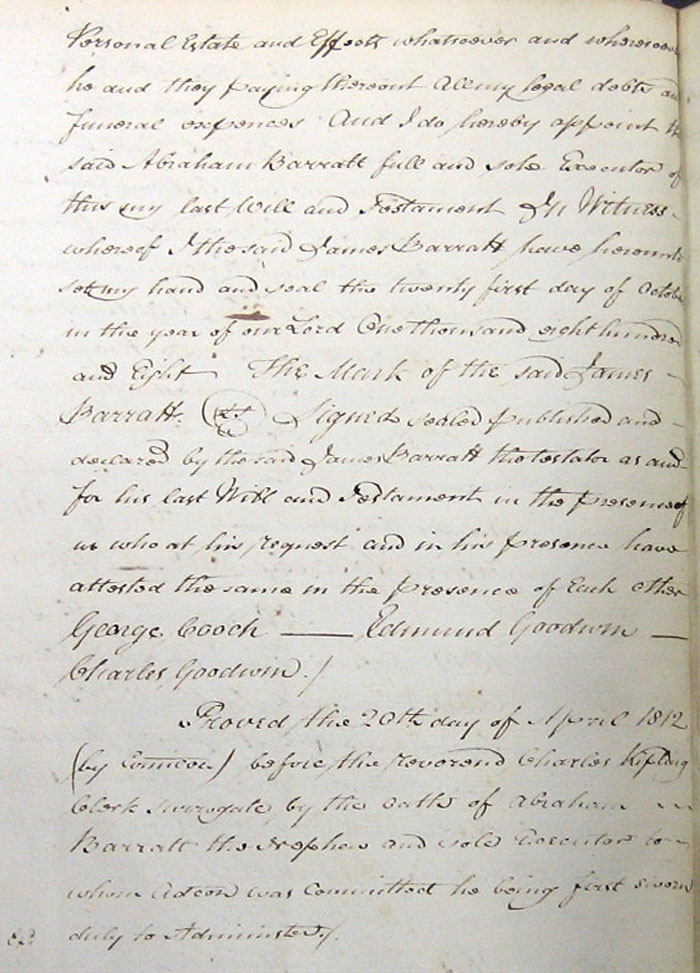 Personal Estate and Effects whatsoever and wheresoever
he and they paying thereout all my legal debts and
funeral expences And I do hereby appoint the
said Abraham Barratt full and sole Executor of
this my last Will and Testament In Witness
whereof I the said James Barratt have hereunto
set my hand and seal the twenty first day of October
in the year of our Lord One thousand eight hundred
and Eight The Mark of the said James
Barratt. LS Signed sealed published and
declared by the said James Barratt the testator as and
for his last Will and Testament in the presence of
us who at his request and in his presence have
attested the same in the presence of Each other
George Cooch — Edmund Goodwin —
Charles Goodwin./
Proved the 20th day of April 1812
(by Comicon) before the Reverend Charles Kipling
Clerk Surrogate by the oath of Abraham
Barratt the Nephew and sole Executor to
whom Adcon was Committed he being first sworn
duly to Administer./.